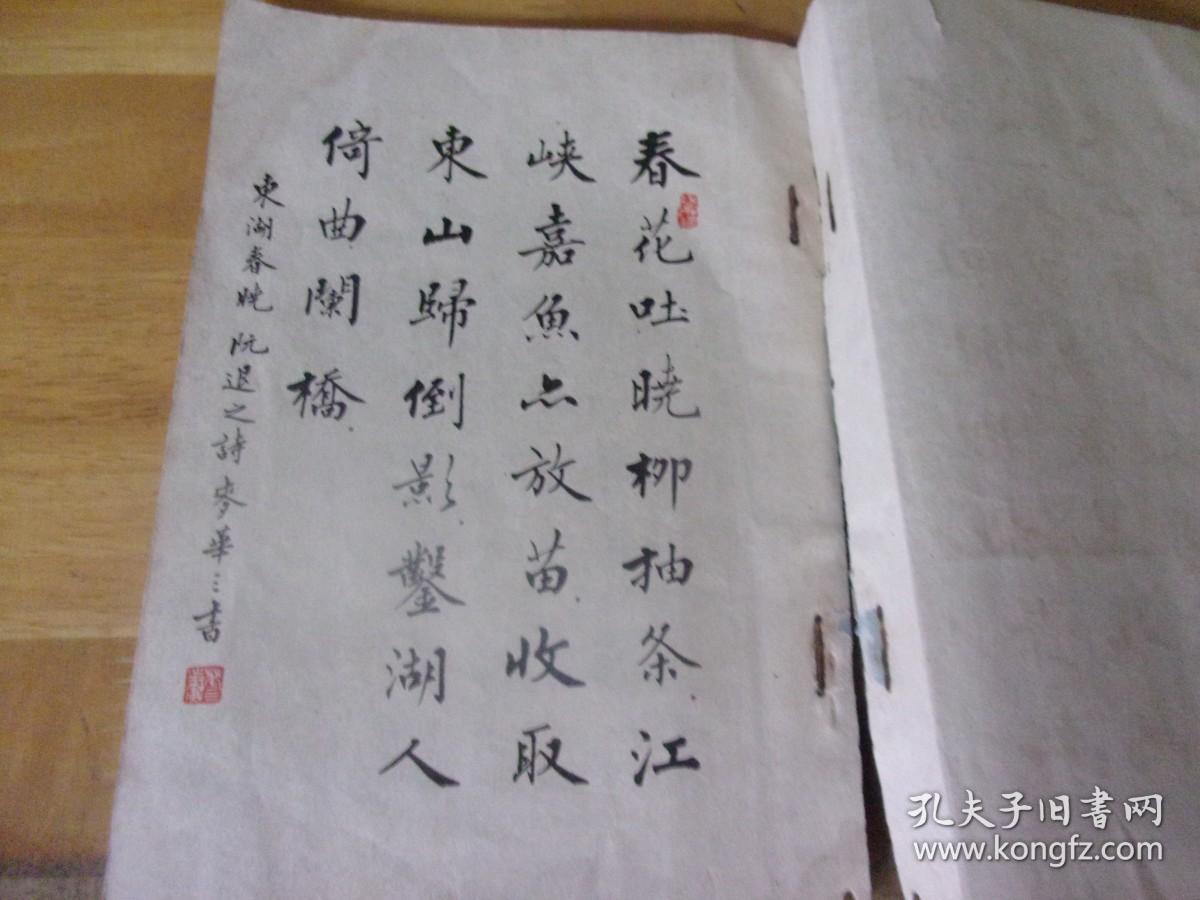 春花吐晓柳抽条江
峡嘉魚亦放苗收取
東山歸倒影鑿湖人
倚曲闌橋
東湖春晓 阮退之詩 麥華三書
孔夫子旧书网
www.kongfz.com